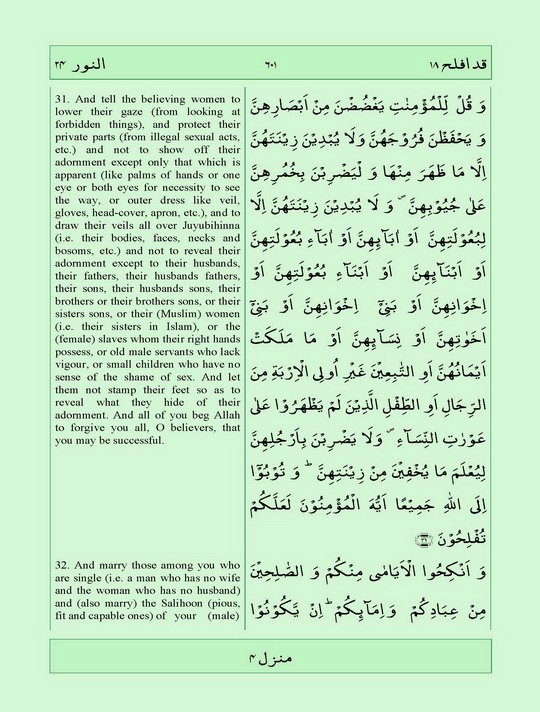 قد افلح ۱۸
۶۰۱
النور ۲۴
وَ قُلْ لِّلْمُؤْمِنٰتِ يَغْضُضْنَ مِنْ اَبْصَارِهِنَّ
وَ يَحْفَظْنَ فُرُوْجَهُنَّ وَلَا يُبْدِيْنَ زِيْنَتَهُنَّ
اِلَّا مَا ظَهَرَ مِنْهَا وَ لْيَضْرِبْنَ بِخُمُرِهِنَّ
عَلٰى جُيُوْبِهِنَّ ۪ وَ لَا يُبْدِيْنَ زِيْنَتَهُنَّ اِلَّا
لِبُعُوْلَتِهِنَّ اَوْ اٰبَآىِٕهِنَّ اَوْ اٰبَآءِ بُعُوْلَتِهِنَّ
اَوْ اَبْنَآىِٕهِنَّ اَوْ اَبْنَآءِ بُعُوْلَتِهِنَّ اَوْ
اِخْوَانِهِنَّ اَوْ بَنِيْۤ اِخْوَانِهِنَّ اَوْ بَنِيْۤ
اَخَوٰتِهِنَّ اَوْ نِسَآىِٕهِنَّ اَوْ مَا مَلَكَتْ
اَيْمَانُهُنَّ اَوِ التّٰبِعِيْنَ غَيْرِ اُولِي الْاِرْبَةِ مِنَ
الرِّجَالِ اَوِ الطِّفْلِ الَّذِيْنَ لَمْ يَظْهَرُوْا عَلٰى
عَوْرٰتِ النِّسَآءِ ۪ وَلَا يَضْرِبْنَ بِاَرْجُلِهِنَّ
لِيُعْلَمَ مَا يُخْفِيْنَ مِنْ زِيْنَتِهِنَّ ؕ وَ تُوْبُوْۤا
اِلَى اللّٰهِ جَمِيْعًا اَيُّهَ الْمُؤْمِنُوْنَ لَعَلَّكُمْ
تُفْلِحُوْنَ ۝۳۱
وَ اَنْكِحُوا الْاَيَامٰى مِنْكُمْ وَ الصّٰلِحِيْنَ
مِنْ عِبَادِكُمْ وَاِمَآىِٕكُمْ ؕ اِنْ يَّكُوْنُوْا
31. And tell the believing women to
lower their gaze (from looking at
forbidden things), and protect their
private parts (from illegal sexual acts,
etc.) and not to show off their
adornment except only that which is
apparent (like palms of hands or one
eye or both eyes for necessity to see
the way, or outer dress like veil,
gloves, head-cover, apron, etc.), and to
draw their veils all over Juyubihinna
(i.e. their bodies, faces, necks and
bosoms, etc.) and not to reveal their
adornment except to their husbands,
their fathers, their husbands fathers,
their sons, their husbands sons, their
brothers or their brothers sons, or their
sisters sons, or their (Muslim) women
(i.e. their sisters in Islam), or the
(female) slaves whom their right hands
possess, or old male servants who lack
vigour, or small children who have no
sense of the shame of sex. And let
them not stamp their feet so as to
reveal what they hide of their
adornment. And all of you beg Allah
to forgive you all, O believers, that
you may be successful.
32. And marry those among you who
are single (i.e. a man who has no wife
and the woman who has no husband)
and (also marry) the Salihoon (pious,
fit and capable ones) of your (male)
منزل ۴